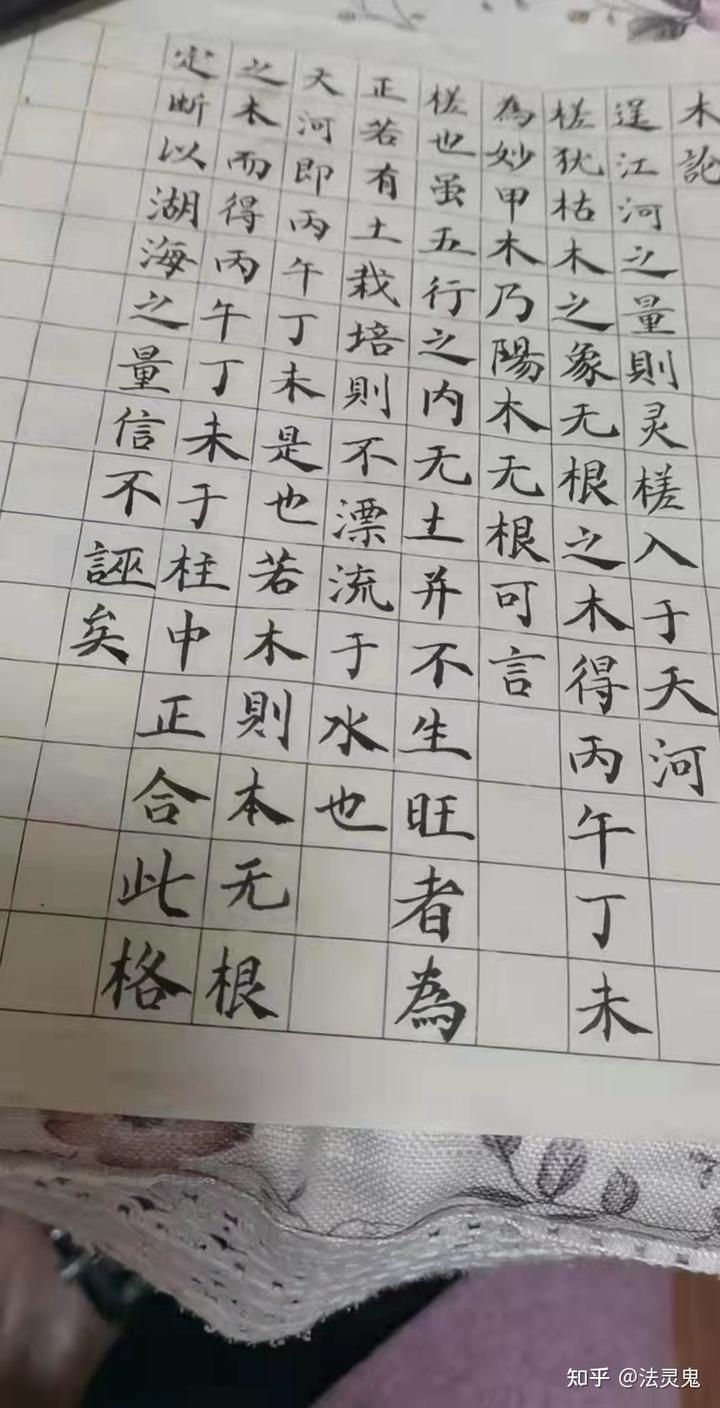 木訫
逞江河之量則灵槎入于天河
槎犹枯木之象无根之木得丙午丁未
為妙甲木乃陽木无根可言
槎也虽五行之内无土并不生旺者為
正若有土栽培則不漂流于水也
天河即丙午丁未是也若木則本无根
之木而得丙午丁未于柱中正合此格
定断以湖海之量信不誣矣
知乎 @法灵鬼